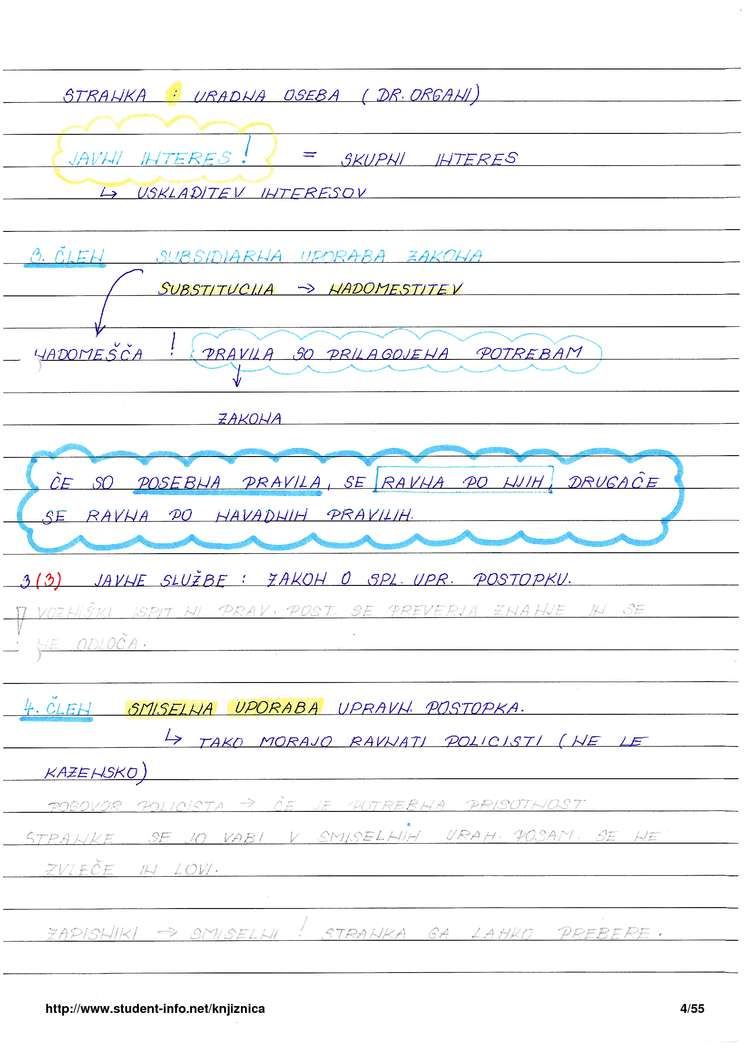 STRANKA : URADNA OSEBA ( DR. ORGANI)
JAVNI INTERES ! = SKUPNI INTERES
↳ USKLADITEV INTERESOV
3. ČLEN SUBSIDIARNA UPORABA ZAKONA
SUBSTITUCIJA → NADOMESTITEV
NADOMEŠČA ! PRAVILA SO PRILAGOJENA POTREBAM
ZAKONA
ČE SO POSEBNA PRAVILA, SE RAVNA PO NJIH, DRUGAČE
SE RAVNA PO NAVADNIH PRAVILIH.
3 (3) JAVNE SLUŽBE : ZAKON O SPL. UPR. POSTOPKU.
VOZNIŠKI ISPIT NI PRAV. POST. SE PREVERJA ZNANJE IN SE
NE ODLOČA.
4. ČLEN SMISELNA UPORABA UPRAVN. POSTOPKA.
↳ TAKO MORAJO RAVNATI POLICISTI ( NE LE
KAZENSKO)
POGOVOR POLICISTA → ČE JE POTREBNA PRISOTNOST
STRANKE SE JO VABI V SMISELNIH URAH. POSAM. SE NE
ZVLEČE IN LOVI.
ZAPISNIKI → SMISELNI ! STRANKA GA LAHKO PREBERE.
http://www.student-info.net/knjiznica 4/55